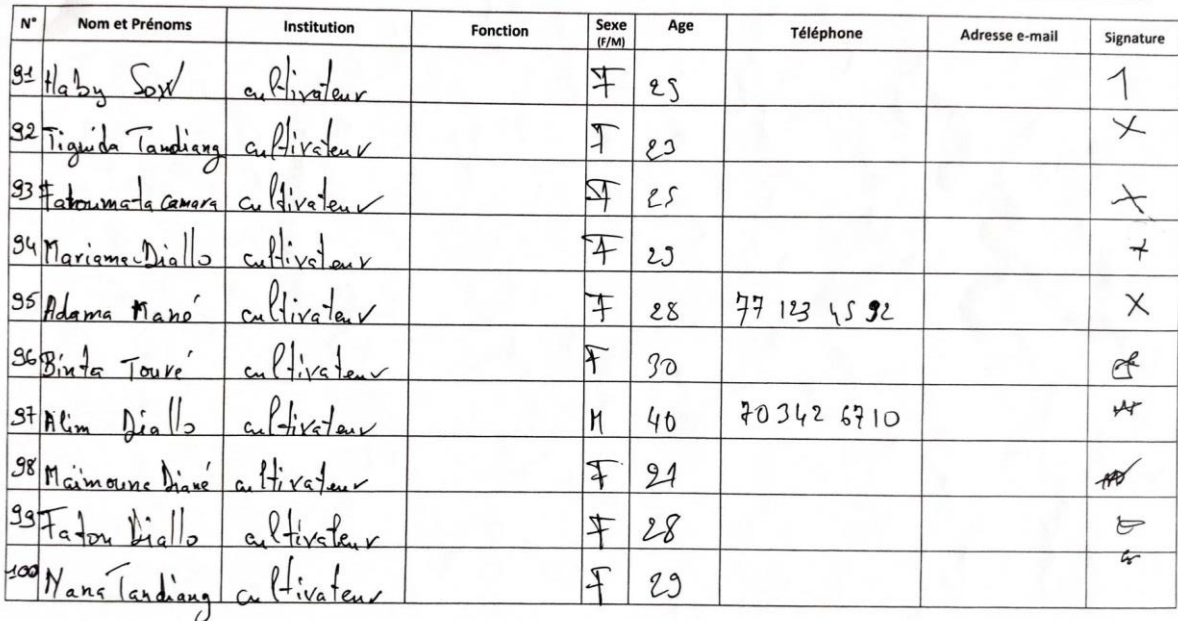 N° Nom et Prénoms Institution Fonction Sexe (F/M) Age Téléphone Adresse e-mail Signature
91 Haby Sow cultivateur F 25
92 Tiguida Tandiang cultivateur F 23
93 Fatoumata Camara cultivateur F 25
94 Mariama Diallo cultivateur F 29
95 Adama Mané cultivateur F 28 77 123 45 92
96 Binta Touré cultivateur F 30
97 Alim Diallo cultivateur M 40 70 342 67 10
98 Maïmouna Diané cultivateur F 21
99 Fatou Diallo cultivateur F 28
100 Nana Tandiang cultivateur F 29